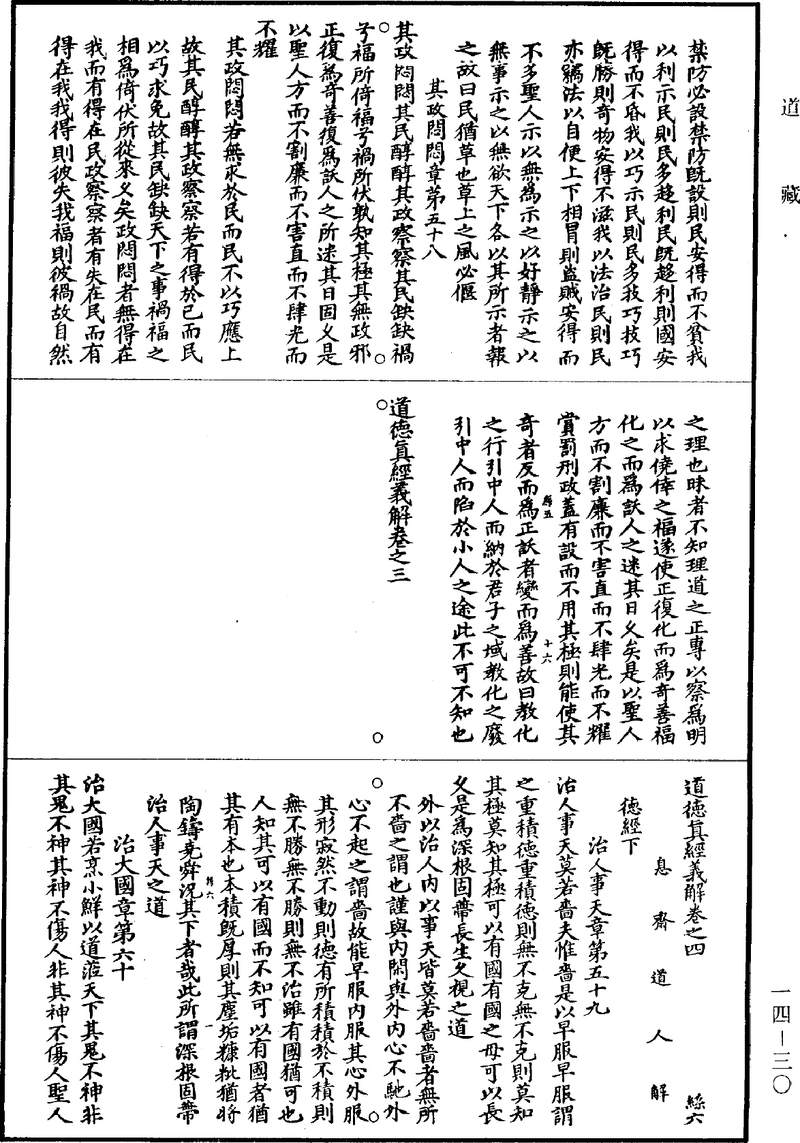 道藏
禁防必設禁防旣設則民安得而不貧我
以利示民則民多趍利民旣趍利則國安
得而不昏我以巧示民則民多技巧技巧
旣勝則奇物安得不滋我以法治民則民
亦竊法以自便上下相冒則盜賊安得而
不多聖人示以無為示之以好靜示之以
無事示之以無欲天下各以其所示者報
之故曰民猶草也草上之風必偃
其政悶悶章第五十八
其政悶悶其民醇醇其政察察其民缺缺禍
兮福所倚福兮禍所伏孰知其極其無政邪
正復為奇善復為訞人之所迷其日固乆是
以聖人方而不割廉而不害直而不肆光而
不耀
其政悶悶若無求於民而民不以巧應上
故其民醇醇其政察察若有得於己而民
以巧求免故其民缺缺天下之事禍福之
相為倚伏所從來乆矣政悶悶者無得在
我而有得在民政察察者有失在民而有
得在我我得則彼失我福則彼禍故自然
之理也昧者不知理道之正專以察為明
以求僥倖之福遂使正復化而為奇善福
化之而為訞人之迷其日乆矣是以聖人
方而不割廉而不害直而不肆光而不耀
賞罰刑政蓋有設而不用其極則能使其
奇者反而為正訞者變而為善故曰教化
之行引中人而納於君子之域教化之廢
引中人而陷於小人之途此不可不知也
十六
道德眞經義解卷之三
道德眞經義解卷之四
絲六
息齋道人解
德經下
治人事天章第五十九
治人事天莫若嗇夫惟嗇是以早服早服謂
之重積德重積德則無不克無不克則莫知
其極莫知其極可以有國有國之母可以長
乆是為深根固蔕長生乆視之道
外以治人內以事天皆莫若嗇嗇者無所
不嗇之謂也謹與內閑與外內心不馳外
心不起之謂嗇故能早服內服其心外服
其形寂然不動則德有所積積於不積則
無不勝無不勝則無不治雖有國猶可也
人知其可以有國而不知可以有國者猶
其有本也本積旣厚則其塵垢糠粃猶將
陶鑄堯舜況其下者哉此所謂深根固蔕
治人事天之道
治大國章第六十
治大國若烹小鮮以道蒞天下其鬼不神非
其鬼不神其神不傷人非其神不傷人聖人
一四—三〇